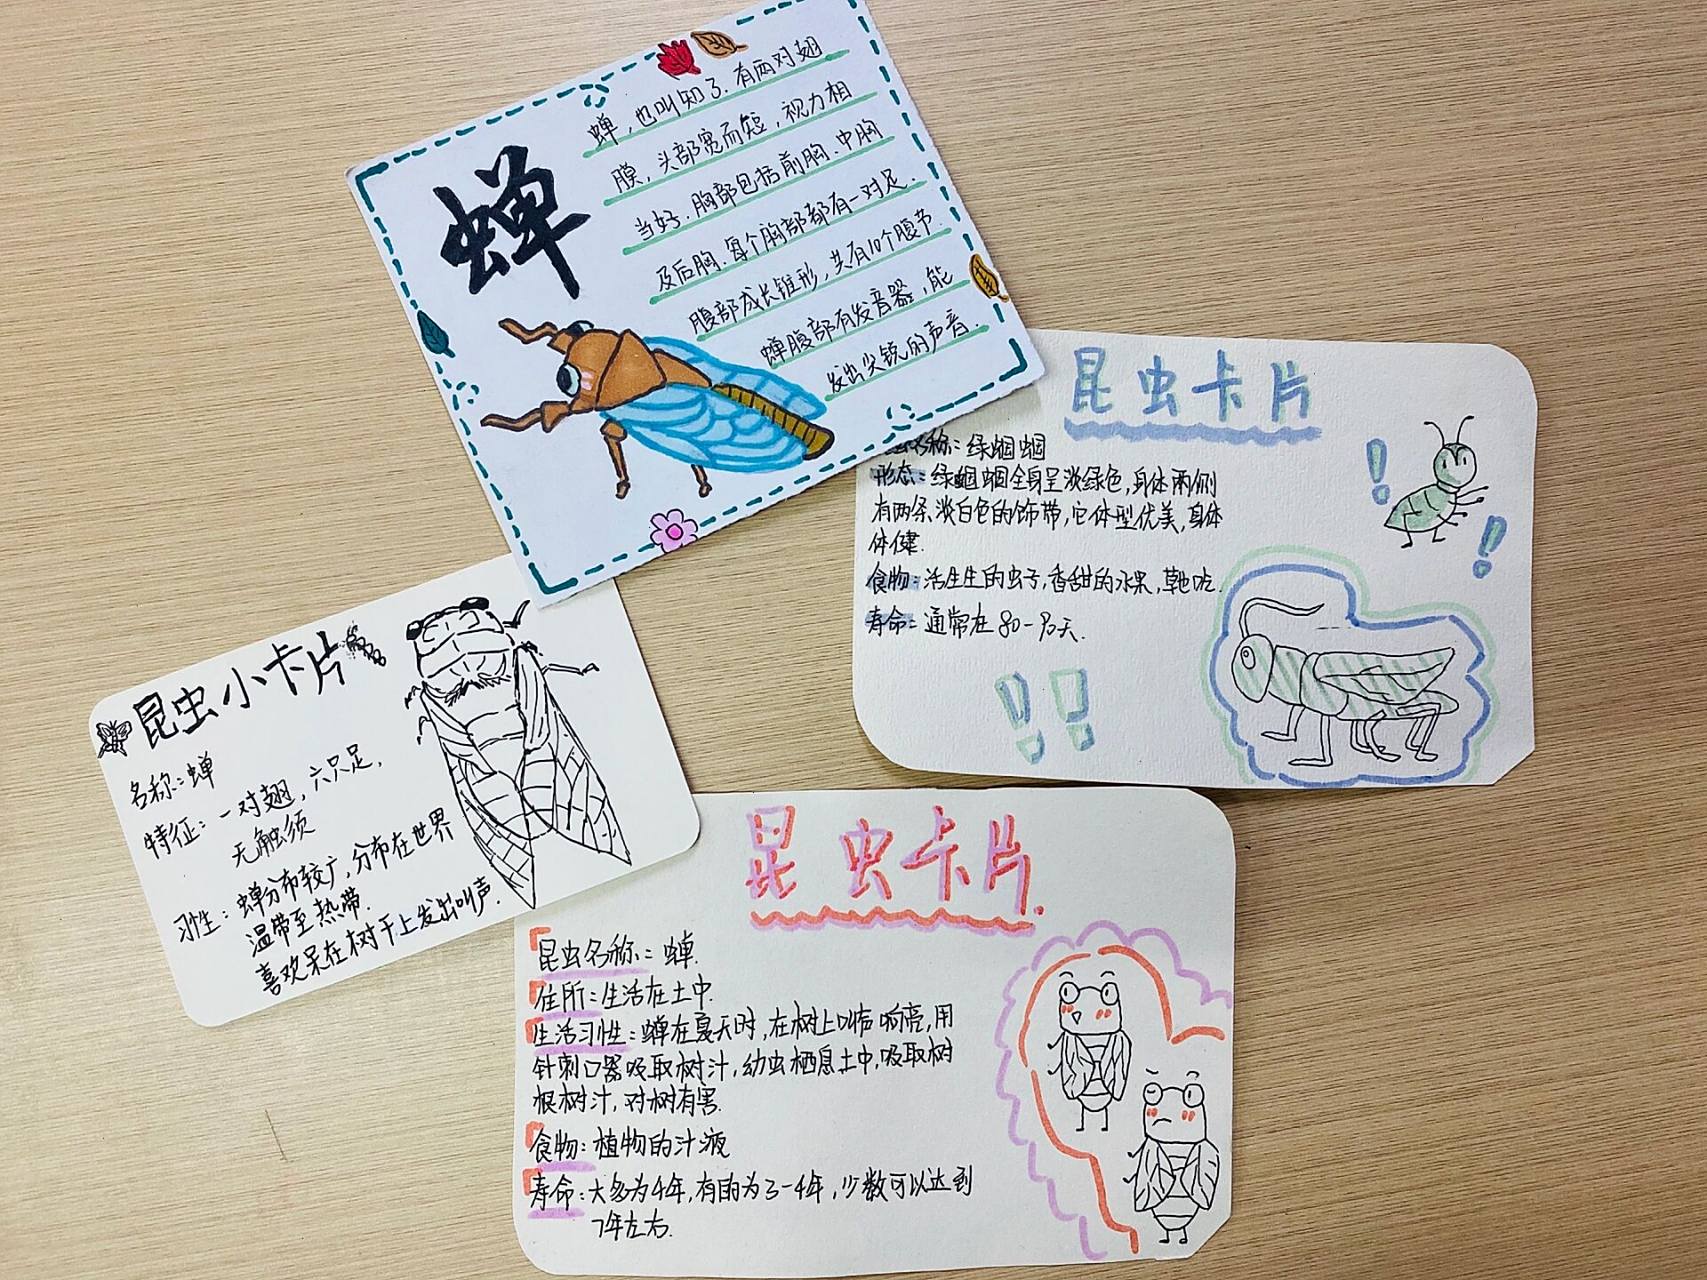 蝉
蝉，也叫知了.有两对翅
膜，头部宽而短，视力相
当好.胸部包括前胸、中胸
及后胸.每个胸部都有一对足.
腹部成长锥形，共有10个腹节.
蝉腹部有发音器，能
发出尖锐的声音.
昆虫卡片
名称：绿蝈蝈
形态：绿蝈蝈全身呈淡绿色，身体两侧
有两条淡白色的饰带，它体型优美，身体
体健.
食物：活生生的虫子，香甜的水果，都吃.
寿命：通常在80-90天.
昆虫小卡片
名称：蝉
特征：一对翅，六只足，
无触须
习性：蝉分布较广，分布在世界
温带至热带.
喜欢呆在树干上发出叫声.
昆虫卡片.
昆虫名称：蝉.
住所：生活在土中.
生活习性：蝉在夏天时，在树上叫声响亮，用
针刺口器吸取树汁，幼虫栖息土中，吸取树
根树汁，对树有害.
食物：植物的汁液
寿命：大多为4年，有的为3-4年，少数可以达到
7年左右.